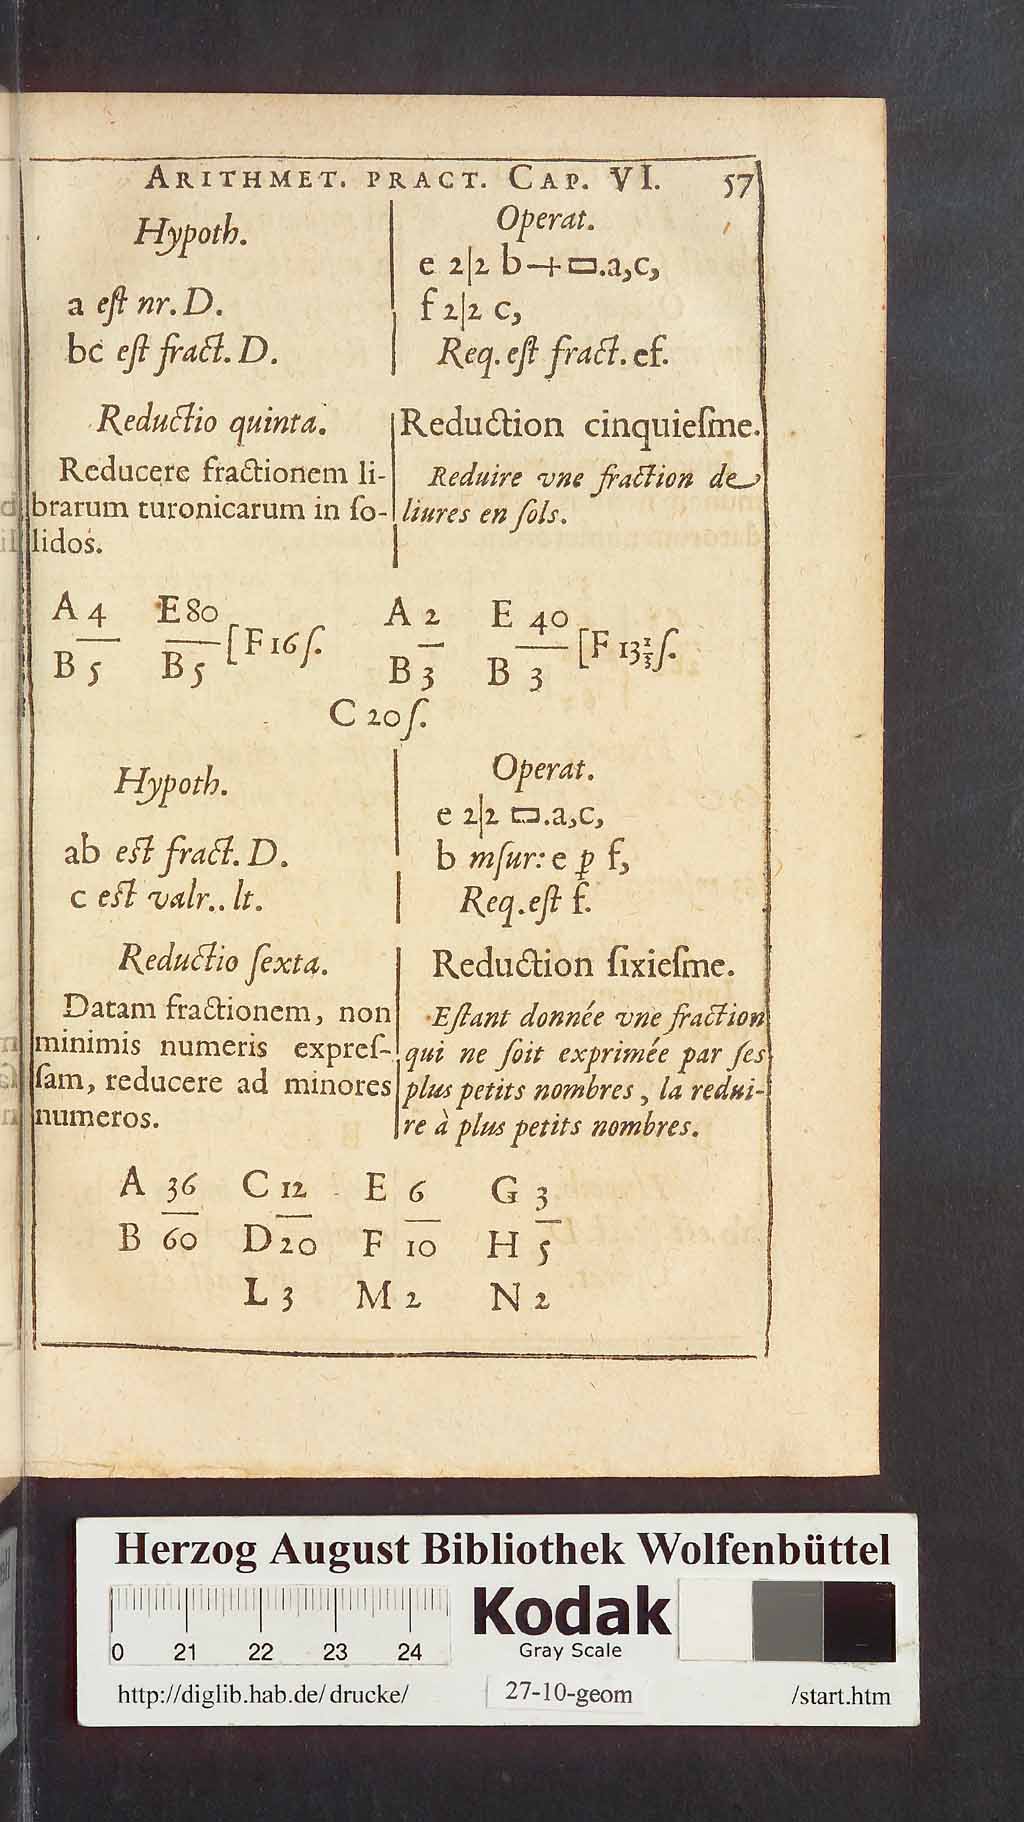 ARITHMET. PRACT. CAP. VI. 57
Hypoth.
a eſt nr. D.
bc eſt fract. D.
Operat.
e 2|2 b+▭.a,c,
f 2|2 c,
Req. eſt fract. ef.
Reductio quinta.
Reducere fractionem li-
brarum turonicarum in ſo-
lidos.
Reduction cinquieſme.
Reduire vne fraction de
liures en ſols.
A 4 E 80 A 2 E 40
[F 16 ſ. [F 13⅓ ſ.
B 5 B 5 B 3 B 3
C 20 ſ.
Hypoth.
ab eſt fract. D.
c eſt valr.. lt.
Operat.
e 2|2 ▭.a,c,
b mſur: e ꝑ f,
Req. eſt f.
Reductio ſexta.
Datam fractionem, non
minimis numeris expreſ-
ſam, reducere ad minores
numeros.
Reduction ſixieſme.
Eſtant donnée vne fraction
qui ne ſoit exprimée par ſes
plus petits nombres, la redui-
re à plus petits nombres.
A 36 C 12 E 6 G 3
B 60 D 20 F 10 H 5
L 3 M 2 N 2
Herzog August Bibliothek Wolfenbüttel
0 21 22 23 24
Kodak
Gray Scale
http://diglib.hab.de/drucke/ 27-10-geom /start.htm